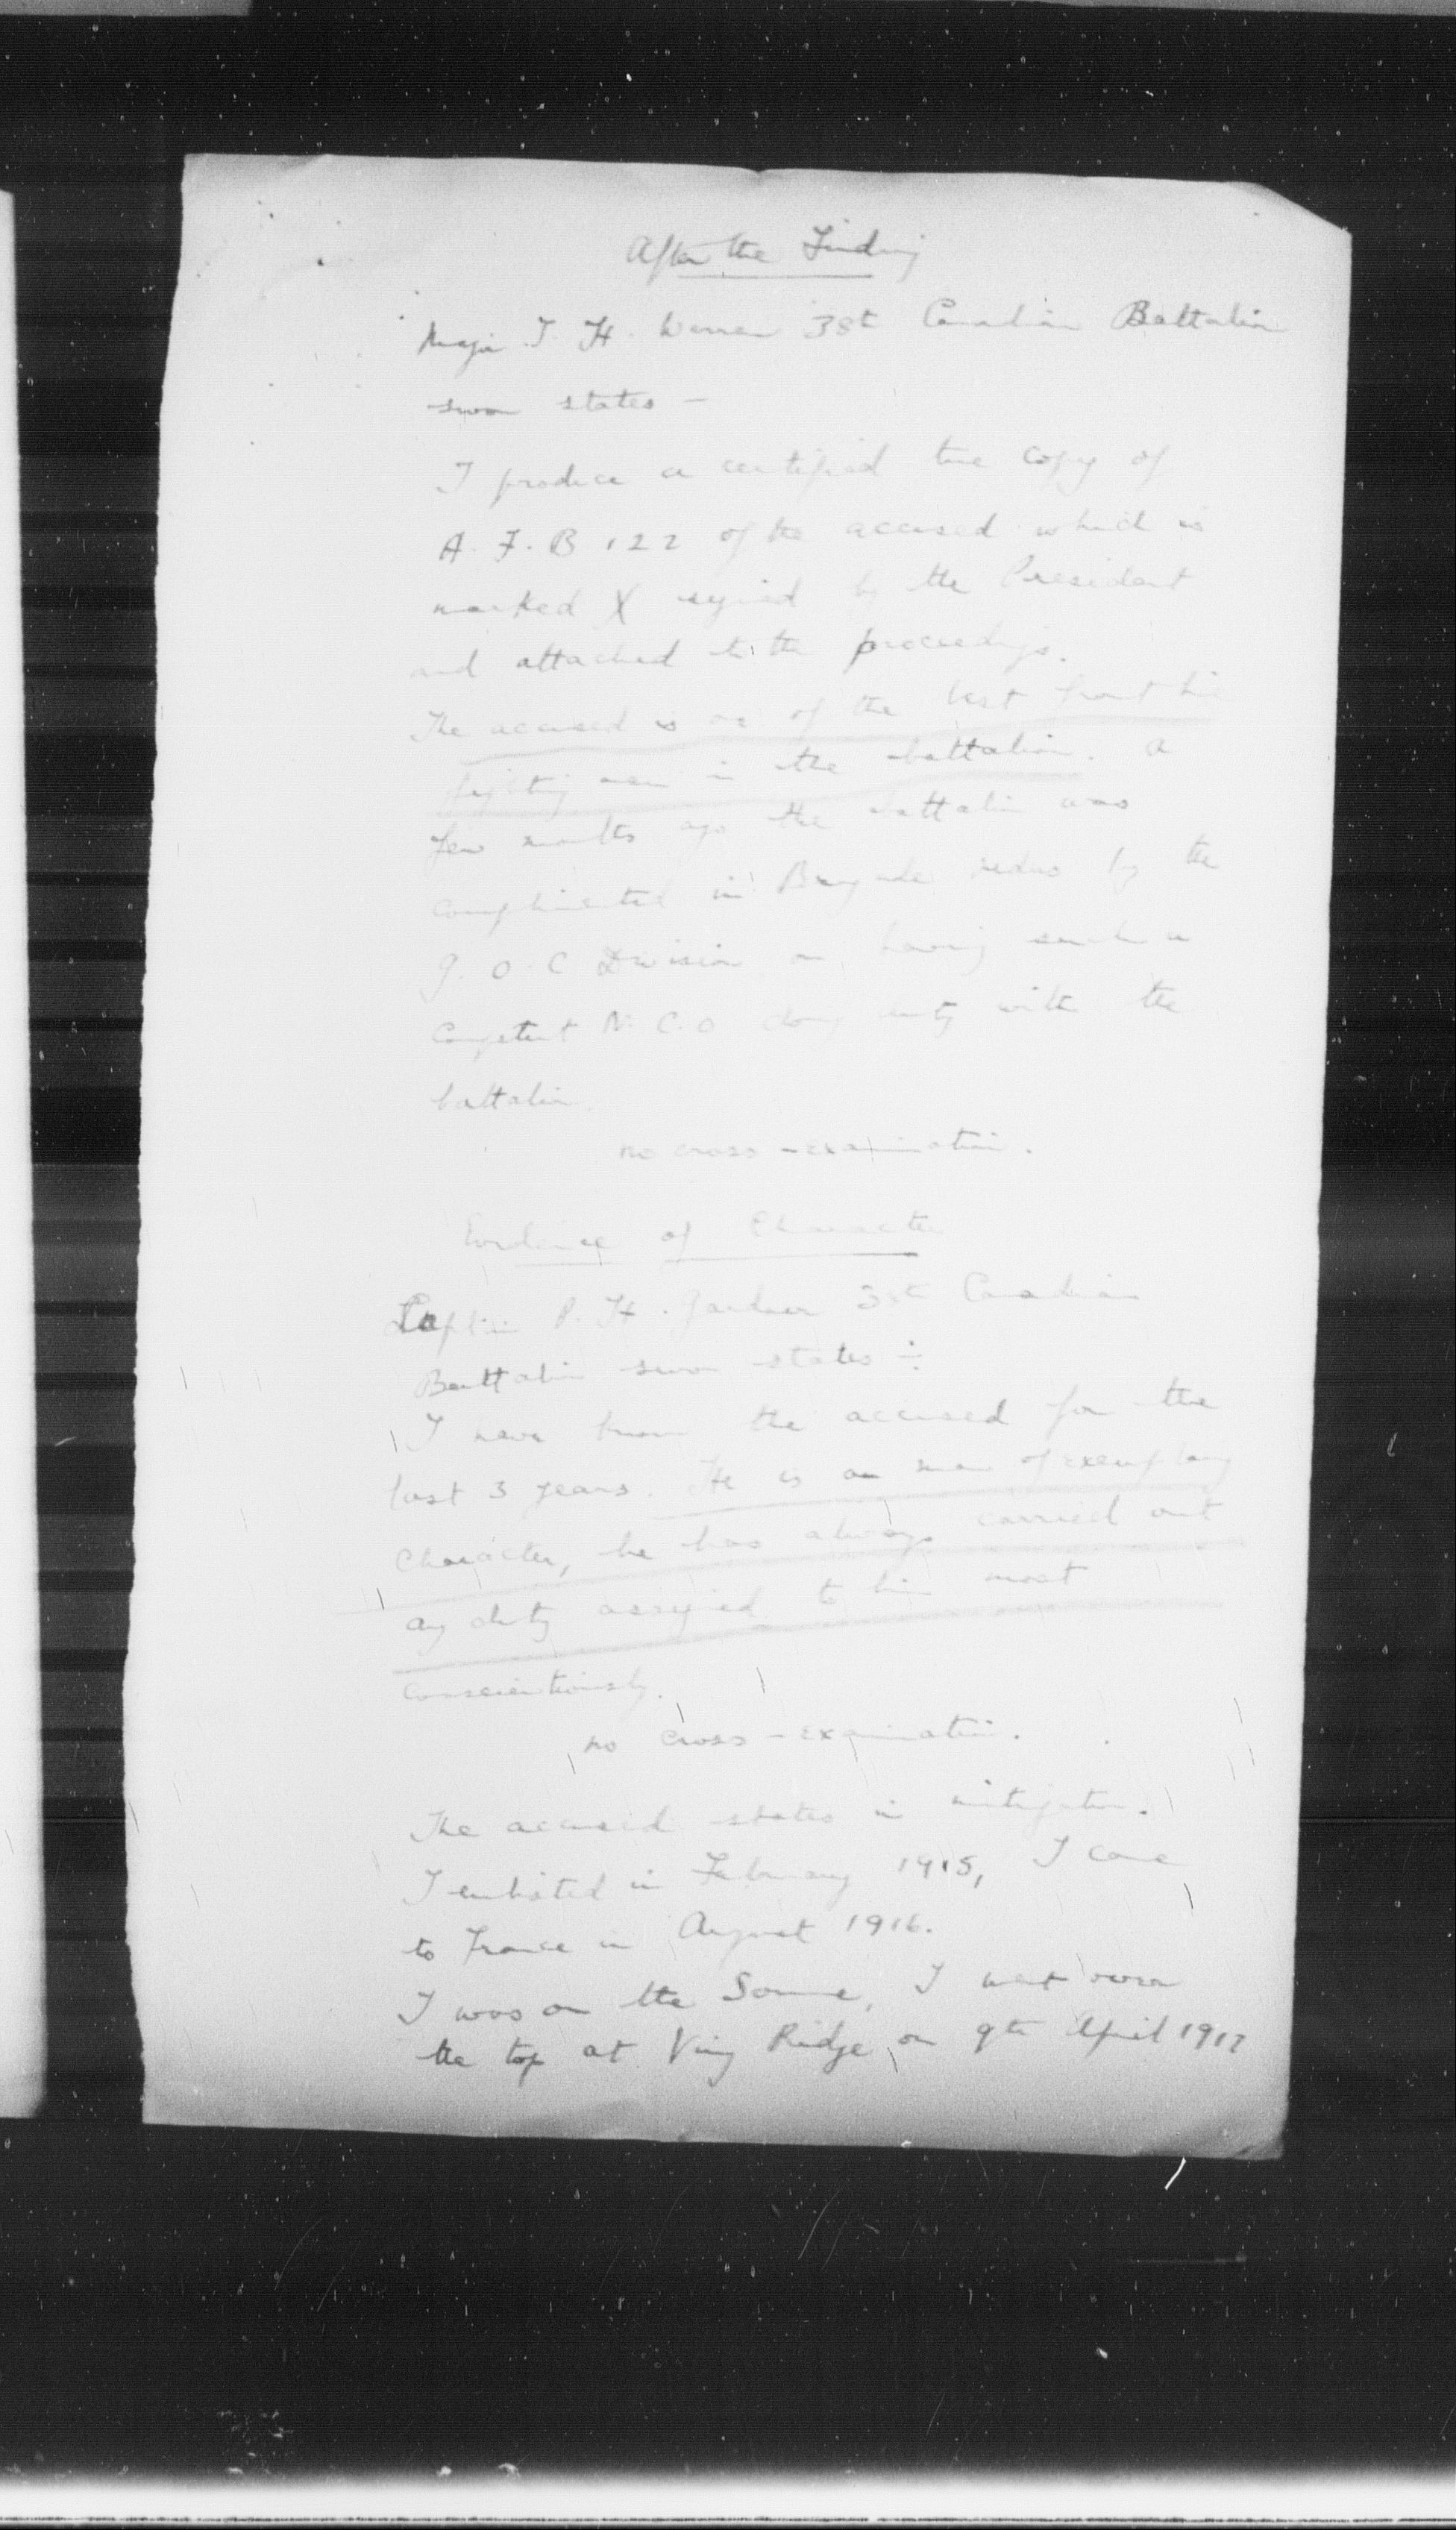 After the Finding
Major T. H. Warren 38th Canadian Battalion
sworn states —
I produce a certified true copy of
A. F. B 122 of the accused which is
marked X signed by the President
and attached to the proceedings.
The accused is one of the best front line
fighting men in the battalion. A
few months ago the battalion was
complimented in Brigade by the
G. O. C Division on having such a
competent N. C. O doing duty with the
battalion.
no cross-examination.
Evidence of Character
Captain P. H. Gardner 38th Canadian
Battalion sworn states :-
I have known the accused for the
last 3 years. He is a man of exemplary
character, he has always carried out
any duty assigned to him most
conscientiously.
no cross-examination.
The accused states in mitigation.
I enlisted in February 1915, I came
to France in August 1916.
I was on the Somme, I went over
the top at Vimy Ridge on 9th April 1917